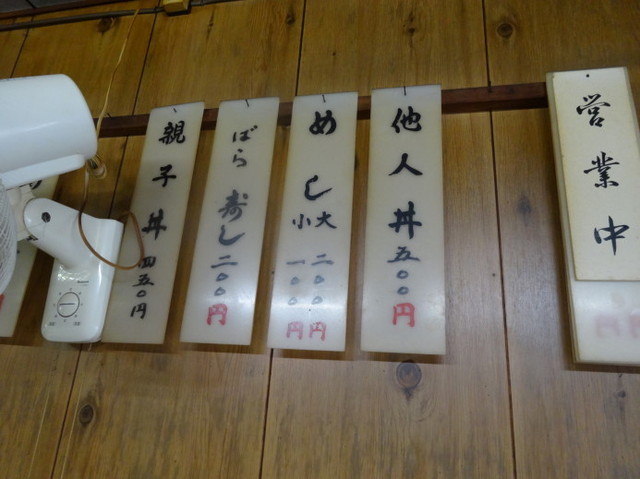 営業中
他人丼 五〇〇円
めし
大 二〇〇円
小 一〇〇円
ばら寿し 二〇〇円
親子丼 四五〇円